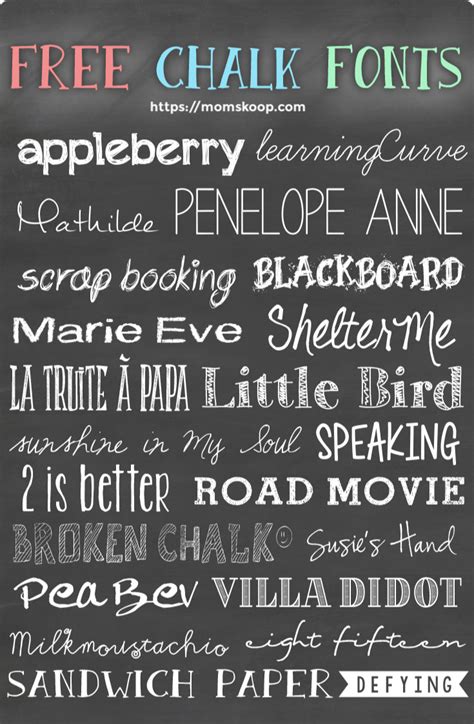 FREE CHALK FONTS
https://momskoop.com
appleberry learningCurve
Mathilde PENELOPE ANNE
scrap booking BLACKBOARD
Marie Eve ShelterMe
LA TRUITE À PAPA Little Bird
sunshine in My Soul SPEAKING
2 is better ROAD MOVIE
BROKEN CHALK Susie's Hand
PeaBev VILLA DIDOT
Milkmoustachio eight fifteen
SANDWICH PAPER DEFYING